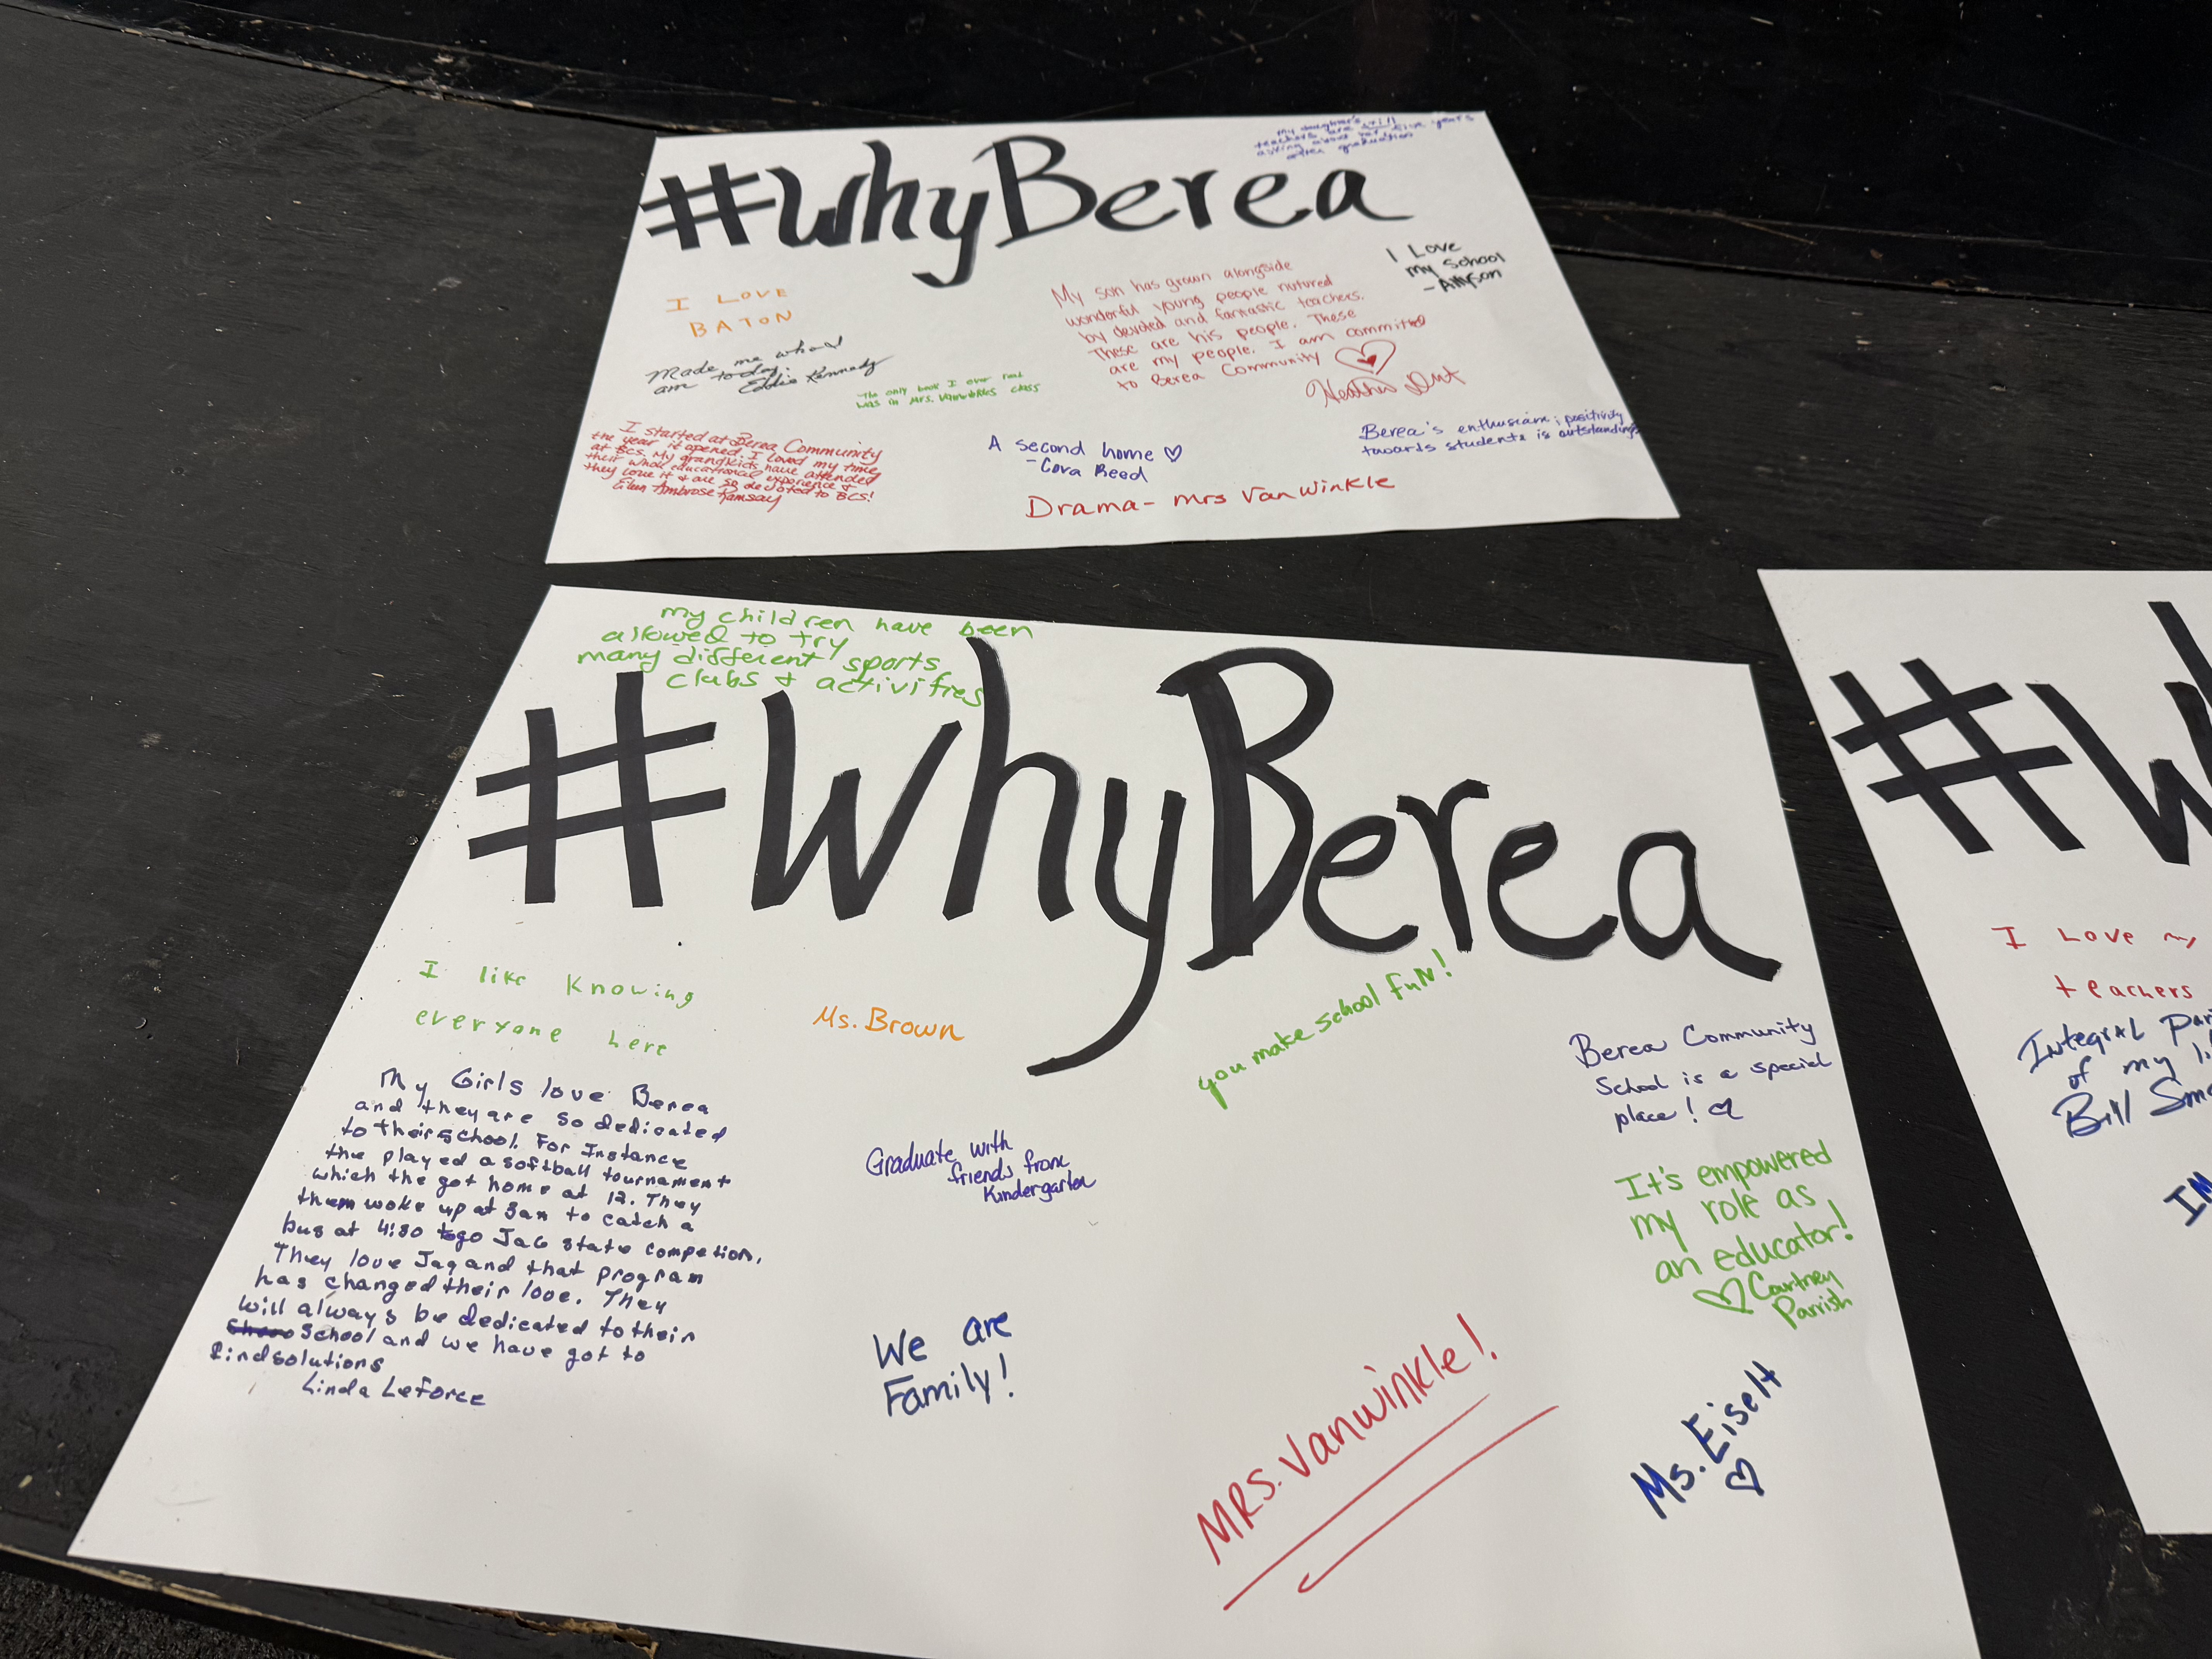 #WhyBerea
my daughter's
teachers are still
asking about her five years
after graduation
I LOVE
BATON
Made me who I
am today.
Eddie Kennedy
The only book I ever read
was in Mrs. Vanwinkles class
My son has grown alongside
wonderful young people nutured
by devoted and fantastic teachers.
These are his people. These
are my people. I am committed
to Berea Community
I Love
my school
- Allyson
I started at Berea Community
the year it opened. I loved my time
at BCS. My grandkids have attended
their whole educational experience &
they love it & are so devoted to BCS!
Ambrose Ramsay
A second home ♡
- Cora Reed
Berea's enthusiasm & positivity
towards students is outstanding
Drama- Mrs VanWinkle
my children have been
allowed to try
many different sports
clubs & activities
#WhyBerea
I like Knowing
everyone here
Ms. Brown
you make school fuN!
Berea Community
School is a special
place!
My Girls love Berea
and they are so dedicated
to their school. For Instance
the played a softball tournament
which the got home at 12. They
them woke up at 3am to catch a
bus at 4:30 to go JaG state competion.
They love Jag and that program
has changed their love. They
will always be dedicated to their
School and we have got to
find solutions
Linda Leforce
Graduate with
friends from
Kindergarten
It's empowered
my role as
an educator!
♡ Courtney
Parrish
We are
Family!
MRS. Vanwinkle!
Ms. Eiselt
♡
#W
I Love my
teachers
Integral
of my
Bill